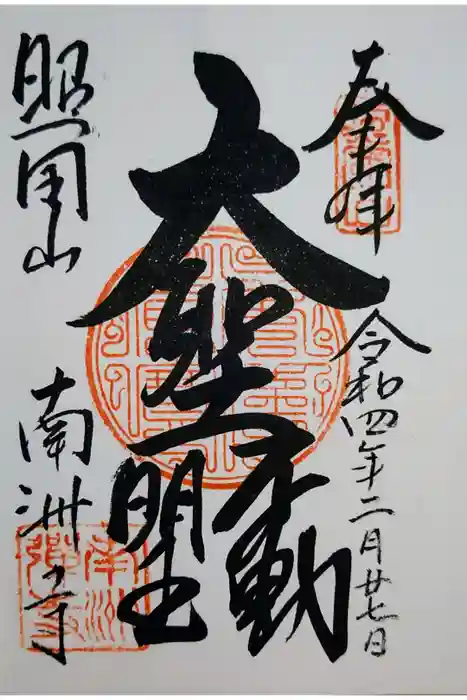 奉拝
令和四年二月廿七日
大聖不動明王
照周山
南洲寺